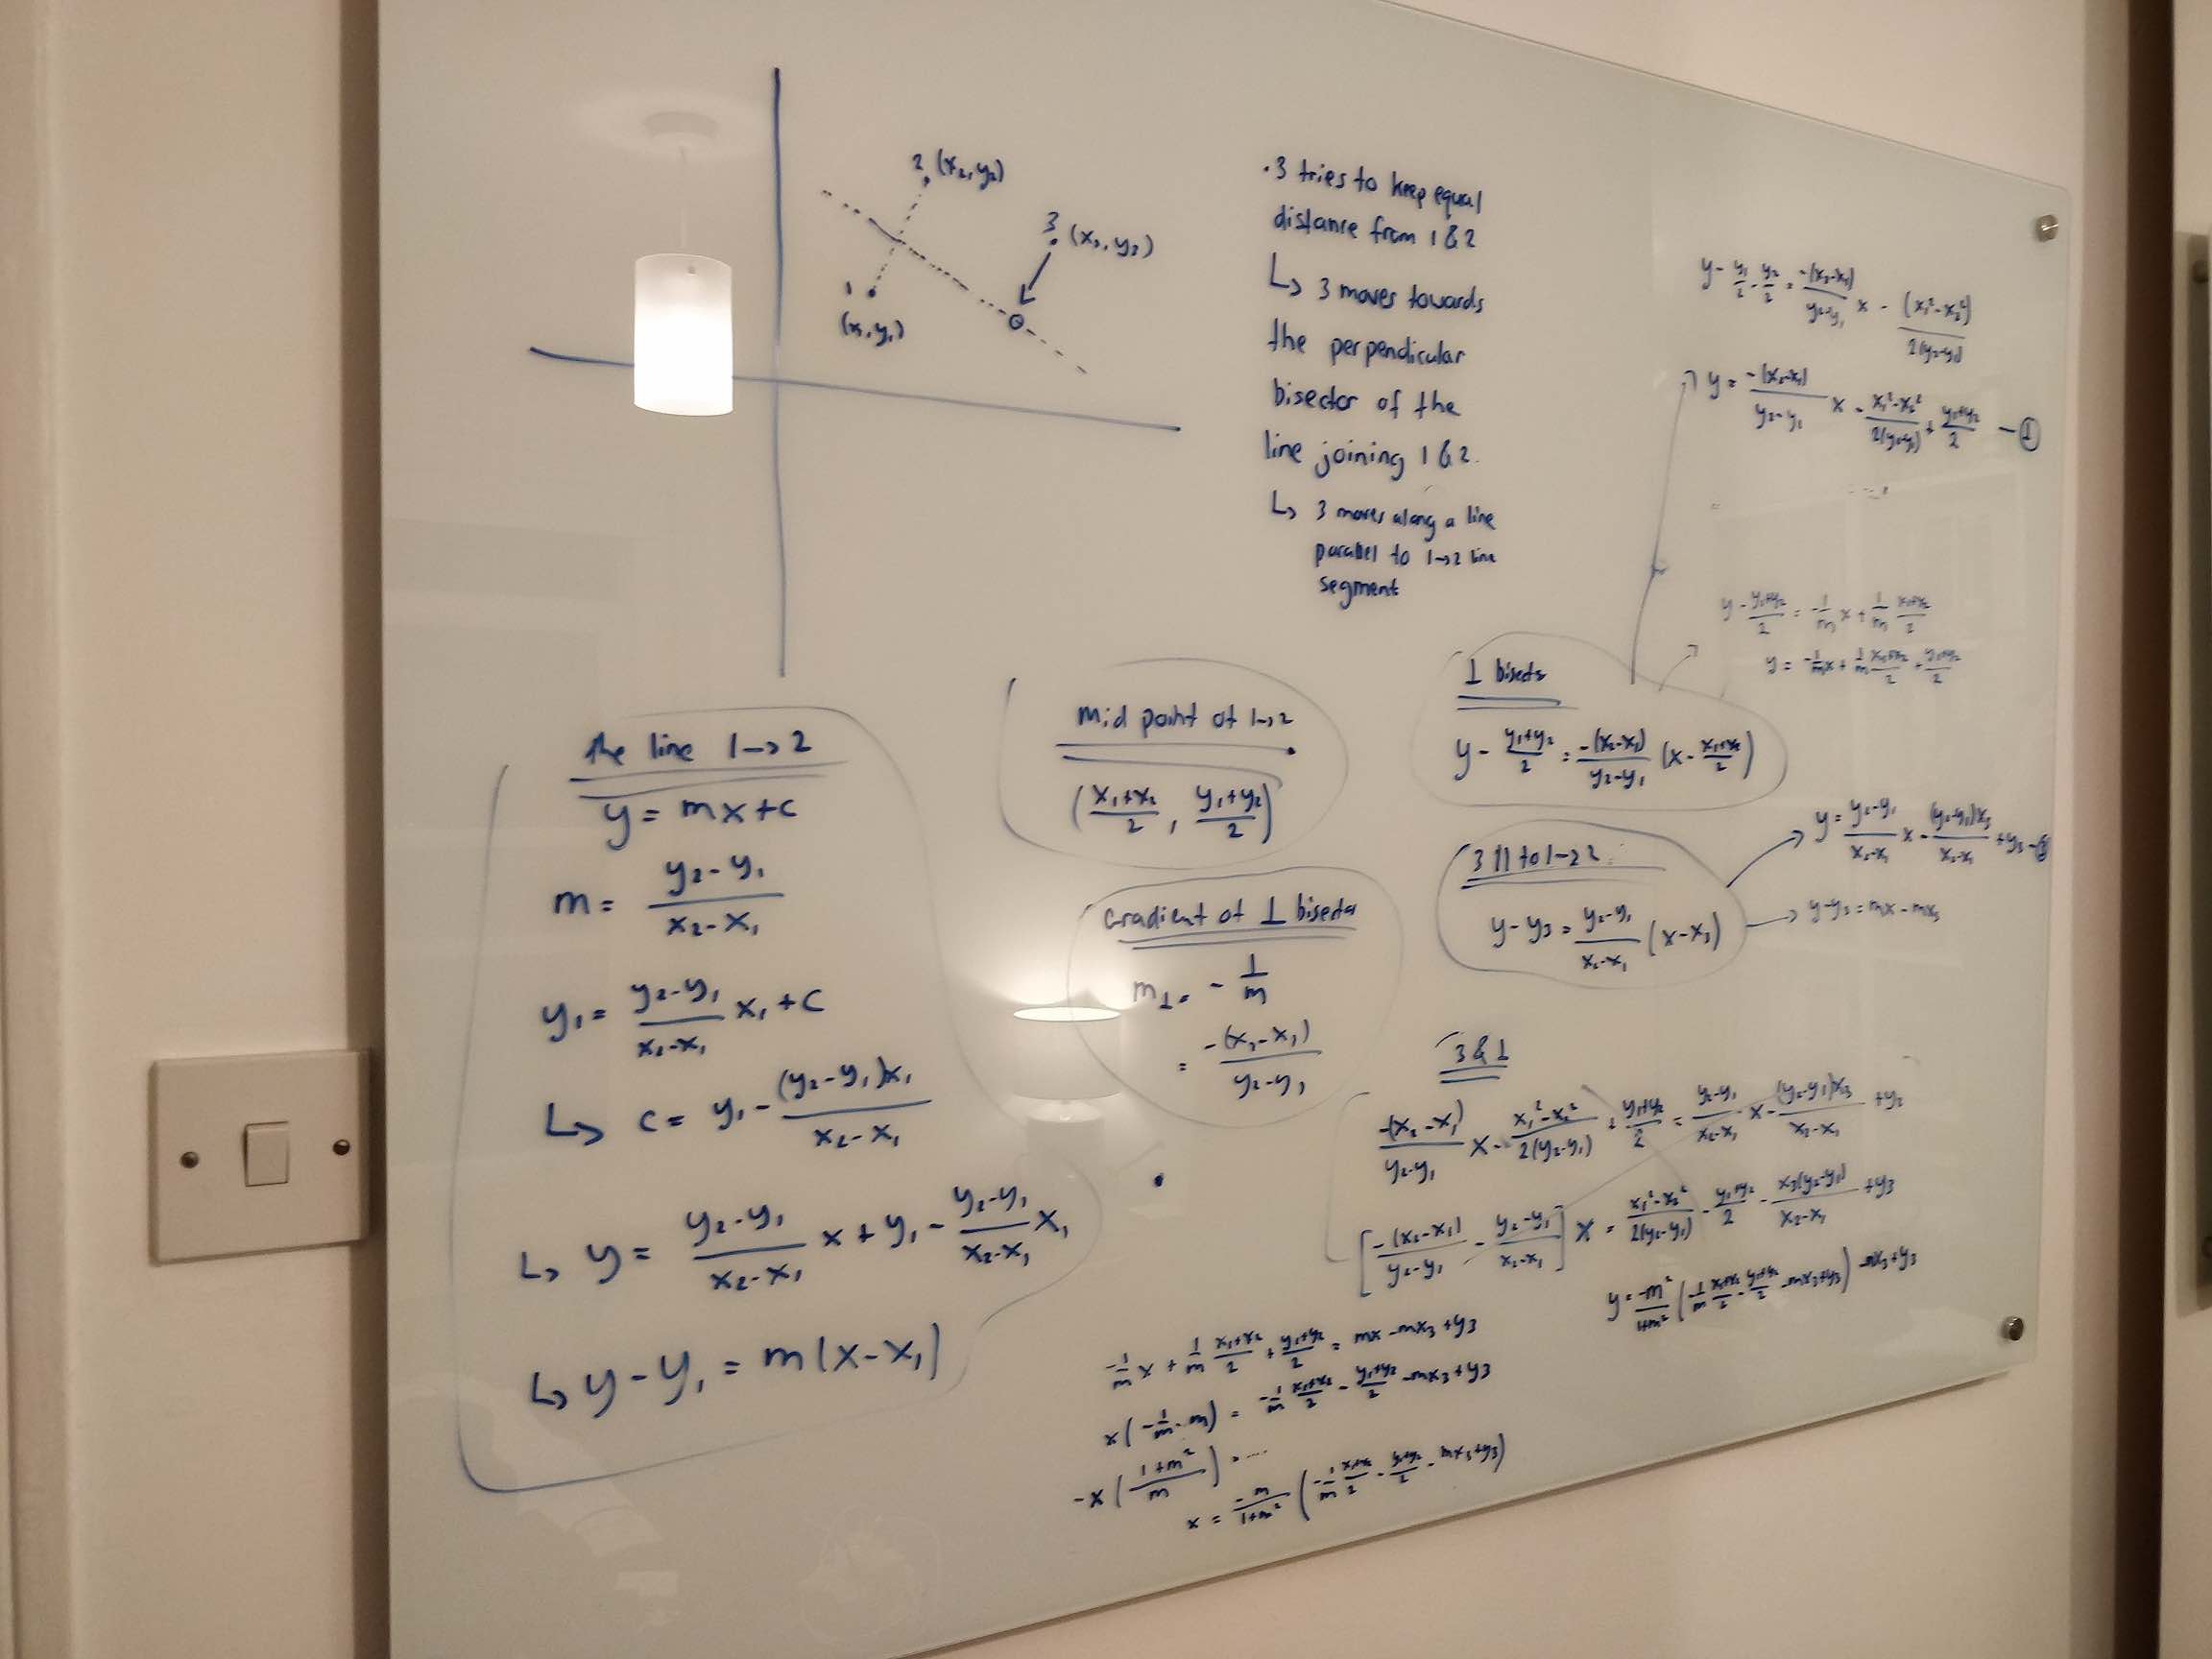 2 (x₂, y₂)
3 (x₃, y₃)
1
(x₁, y₁)
· 3 tries to keep equal
distance from 1 & 2
↳ 3 moves towards
the perpendicular
bisector of the
line joining 1 & 2.
↳ 3 moves along a line
parallel to 1→2 line
segment
y - y₁/2 - y₂/2 = -(x₂-x₁)/(y₂-y₁) x - (x₁²-x₂²)/2(y₂-y₁)
y = -(x₂-x₁)/(y₂-y₁) x - (x₁²-x₂²)/2(y₂-y₁) + (y₁+y₂)/2 — ①
y - (y₁+y₂)/2 = -1/m x + 1/m (x₁+x₂)/2
y = -1/m x + 1/m (x₁+x₂)/2 + (y₁+y₂)/2
the line 1→2
y = mx+c
m = (y₂-y₁)/(x₂-x₁)
y₁ = (y₂-y₁)/(x₂-x₁) x₁ + c
↳ c = y₁ - (y₂-y₁)x₁/(x₂-x₁)
↳ y = (y₂-y₁)/(x₂-x₁) x + y₁ - (y₂-y₁)/(x₂-x₁) x₁
↳ y - y₁ = m(x-x₁)
mid point of 1→2
((x₁+x₂)/2, (y₁+y₂)/2)
Gradient of ⊥ bisector
m⊥ = - 1/m
= -(x₂-x₁)/(y₂-y₁)
⊥ bisects
y - (y₁+y₂)/2 = -(x₂-x₁)/(y₂-y₁) (x - (x₁+x₂)/2)
3 || to 1→2
y - y₃ = (y₂-y₁)/(x₂-x₁) (x-x₃)
y = (y₂-y₁)/(x₂-x₁) x - (y₂-y₁)x₃/(x₂-x₁) + y₃ —
y-y₃ = mx - mx₃
3 & ⊥
-(x₂-x₁)/(y₂-y₁) x - (x₁²-x₂²)/2(y₂-y₁) + (y₁+y₂)/2 = (y₂-y₁)/(x₂-x₁) x - (y₂-y₁)x₃/(x₂-x₁) + y₃
[-(x₂-x₁)/(y₂-y₁) - (y₂-y₁)/(x₂-x₁)] x = (x₁²-x₂²)/2(y₂-y₁) - (y₁+y₂)/2 - x₃(y₂-y₁)/(x₂-x₁) + y₃
y = -m²/(1+m²) (-1/m (x₁+x₂)/2 - (y₁+y₂)/2 - mx₃+y₃) - mx₃+y₃
-1/m x + 1/m (x₁+x₂)/2 + (y₁+y₂)/2 = mx - mx₃ + y₃
x(-1/m - m) = -1/m (x₁+x₂)/2 - (y₁+y₂)/2 - mx₃ + y₃
-x((1+m²)/m) = ....
x = -m/(1+m²) (-1/m (x₁+x₂)/2 - (y₁+y₂)/2 - mx₃+y₃)